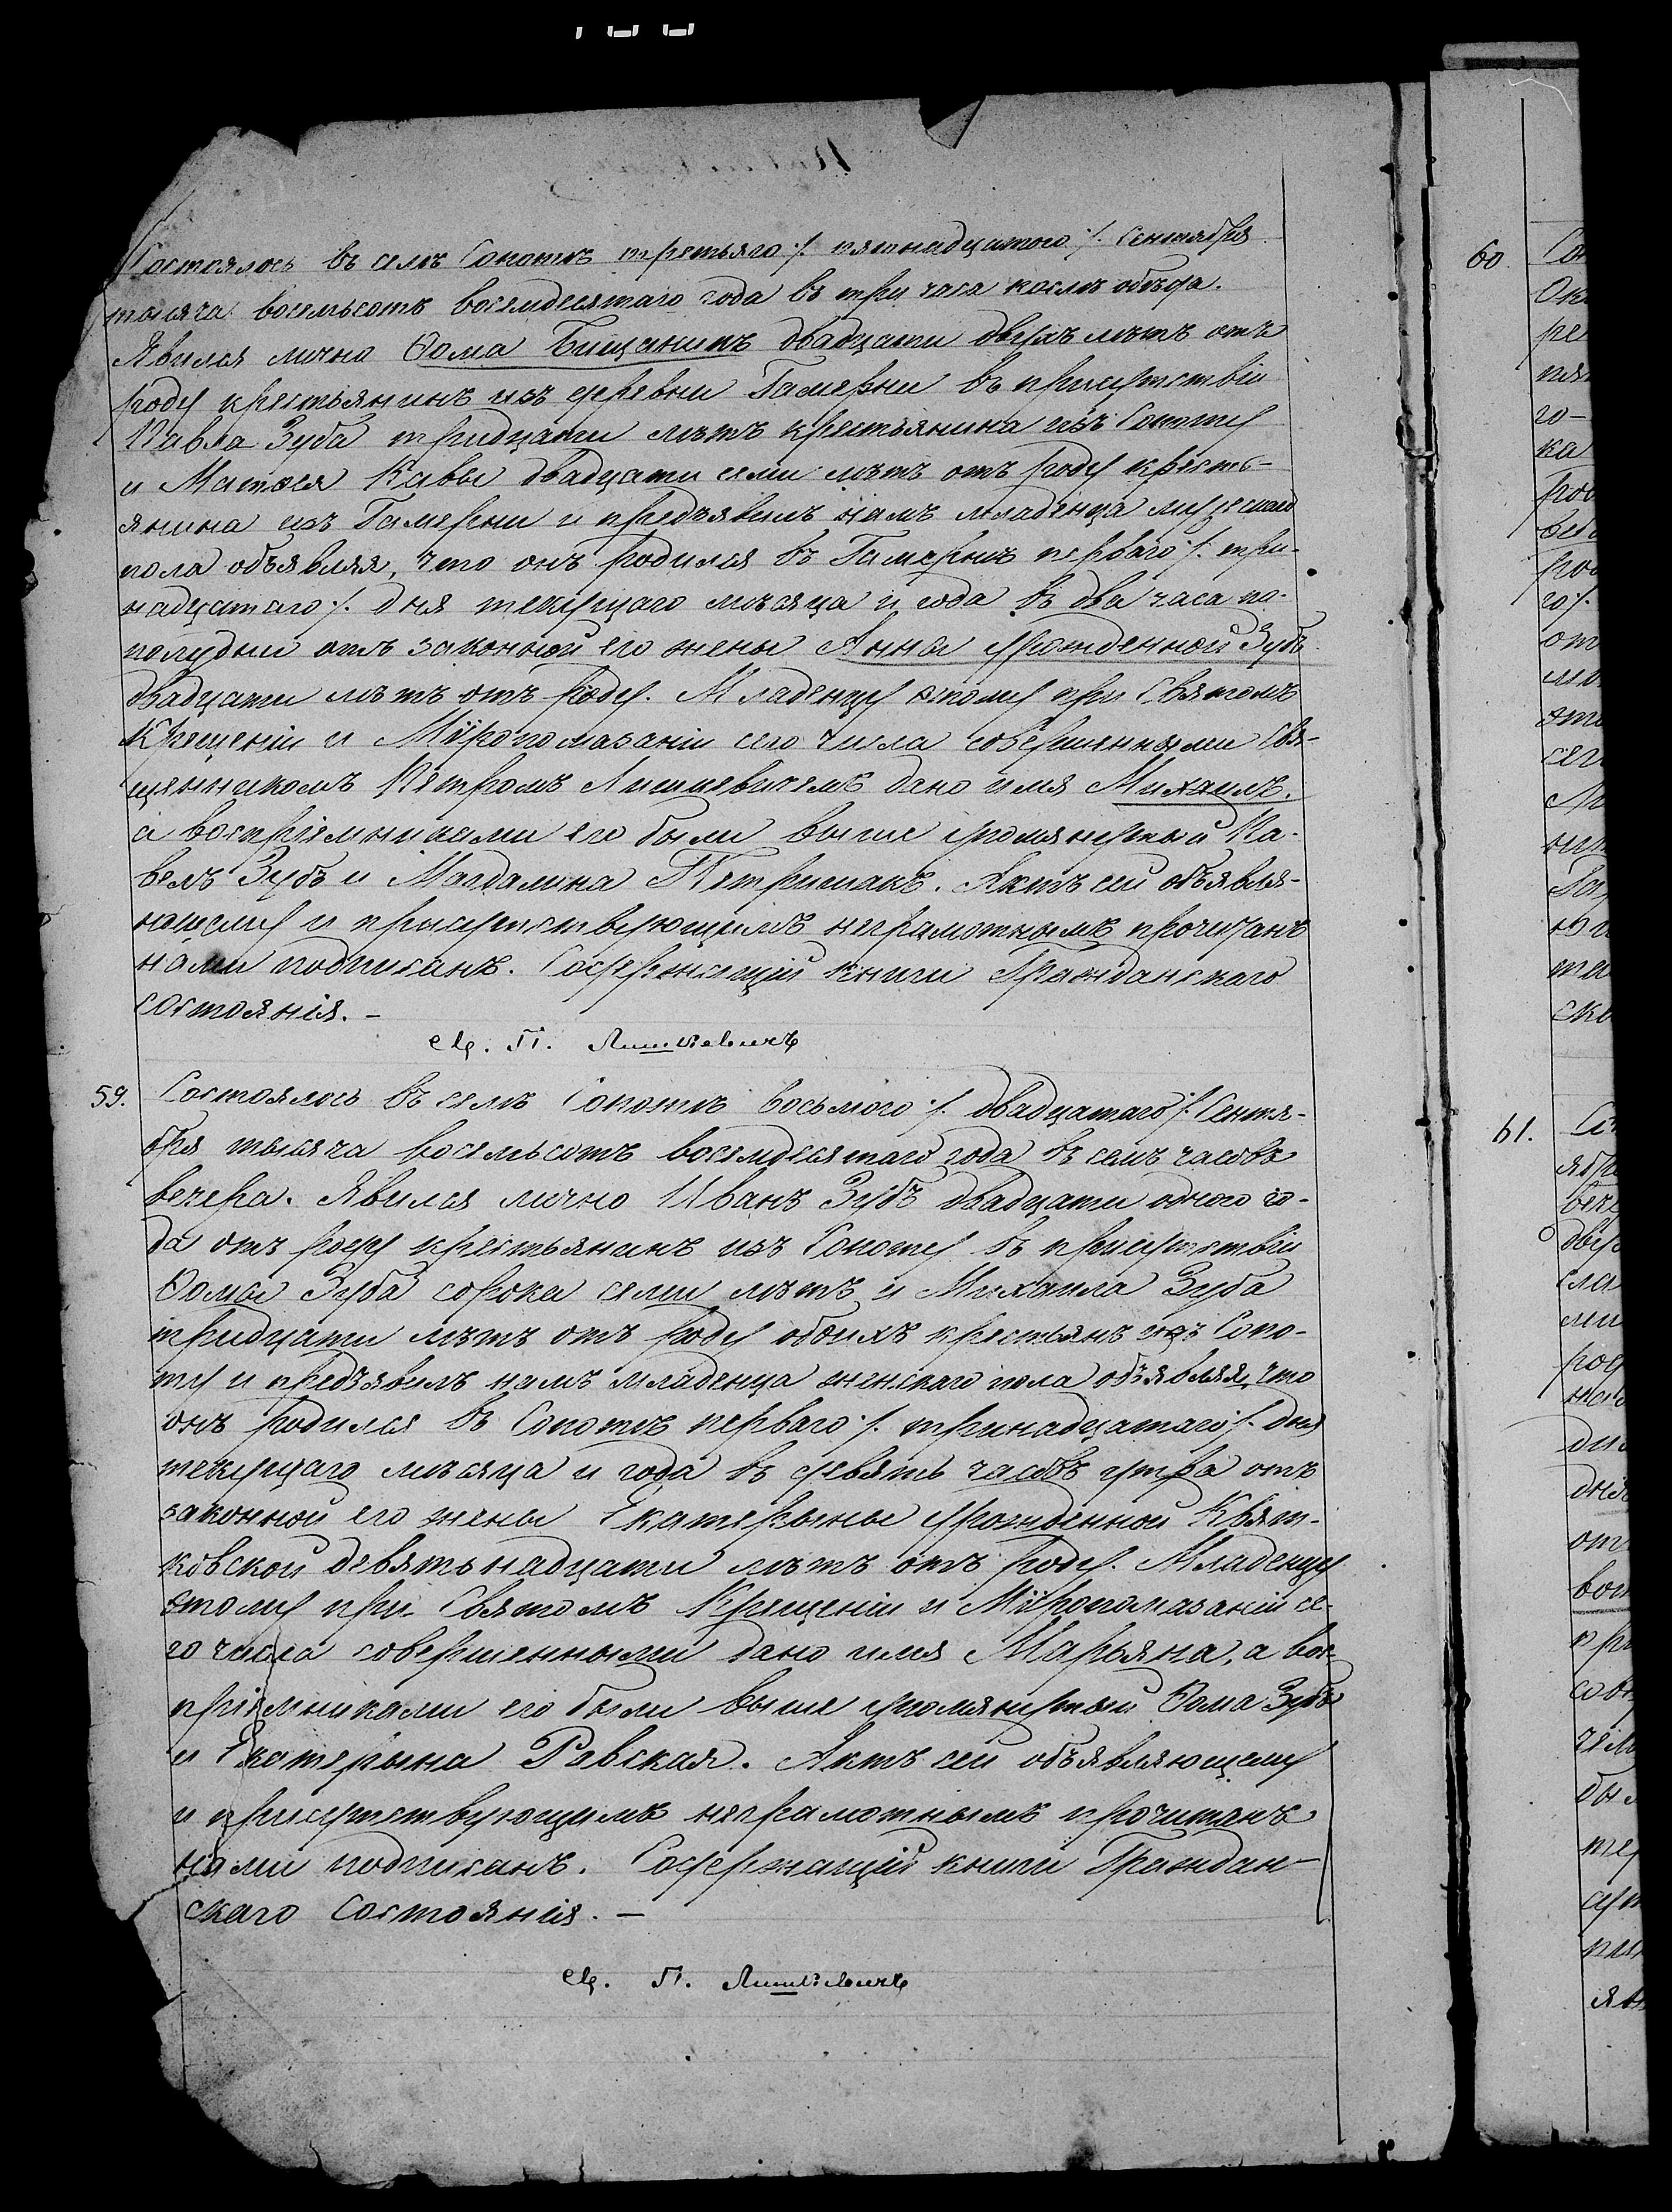 Состоялось въ селѣ Сопотѣ третьяго /. пятнадцатого /. Сентября
тысяча восемьсотъ восемдесятаго года въ три часа послѣ обѣда.
Явился лично Ѳома Бищаникъ двадцати двухъ лѣтъ отъ
роду крестьянинъ изъ деревни Гамерни въ присутствіи
Павла Зуба тридцати лѣтъ крестьянина изъ Сопоту
и Матѳея Кавы двадцати семи лѣтъ отъ роду кресть-
янина изъ Гамерни и предъявилъ намъ младенца мужескаго
пола объявляя, что онъ родился въ Гамернѣ перваго /. три-
надцатаго /. дня текущаго мѣсяца и года въ два часа по-
полудни отъ законной его жены Анны урожденной Зубъ
двадцати лѣтъ отъ роду. Младенцу этому при Святомъ
Крещеніи и Мѵропомазаніи сего числа совершенными Свя-
щенникомъ Петромъ Лишкевичемъ дано имя Михаилъ.
а воспріемниками его были выше упомянутый Па-
велъ Зубъ и Магдалина Петришакъ. Актъ сей объявля-
ющему и присутствующимъ неграмотнымъ прочитанъ
нами подписанъ. Содержащій книги Гражданскаго
состоянія. –
Св. П. Лишкевичъ
59. Состоялось въ селѣ Сопотѣ восьмого /. двадцатаго /. Сентя-
бря тысяча восемьсотъ восемдесятаго года въ семъ часовъ
вечера. Явился лично Иванъ Зубъ двадцати одного го-
да отъ роду крестьянинъ изъ Сопоту въ присутствіи
Ѳомы Зуба сорока семи лѣтъ и Михаила Зуба
тридцати лѣтъ отъ роду обоихъ крестьянъ изъ Сопо-
ту и предъявилъ намъ младенца женскаго пола объявляя, что
онъ родился въ Сопотѣ перваго /. тринадцатаго /. дня
текущаго мѣсяца и года въ девять часовъ утра отъ
законной его жены Екатерыны урожденной Квят-
ковской девятьнадцати лѣтъ отъ роду. Младенцу
этому при Святомъ Крещеніи и Мѵропомазаніи се-
го числа совершенными дано имя Марьяна, а вос-
пріемниками его были выше упомянутый Ѳома Зубъ
и Екатерына Ровская. Актъ сей объявляющему
и присутствующимъ неграмотнымъ прочитанъ
нами подписанъ. Содержащій книги Граждан-
скаго Состоянія. –
Св. П. Лишкевичъ
60.
61.